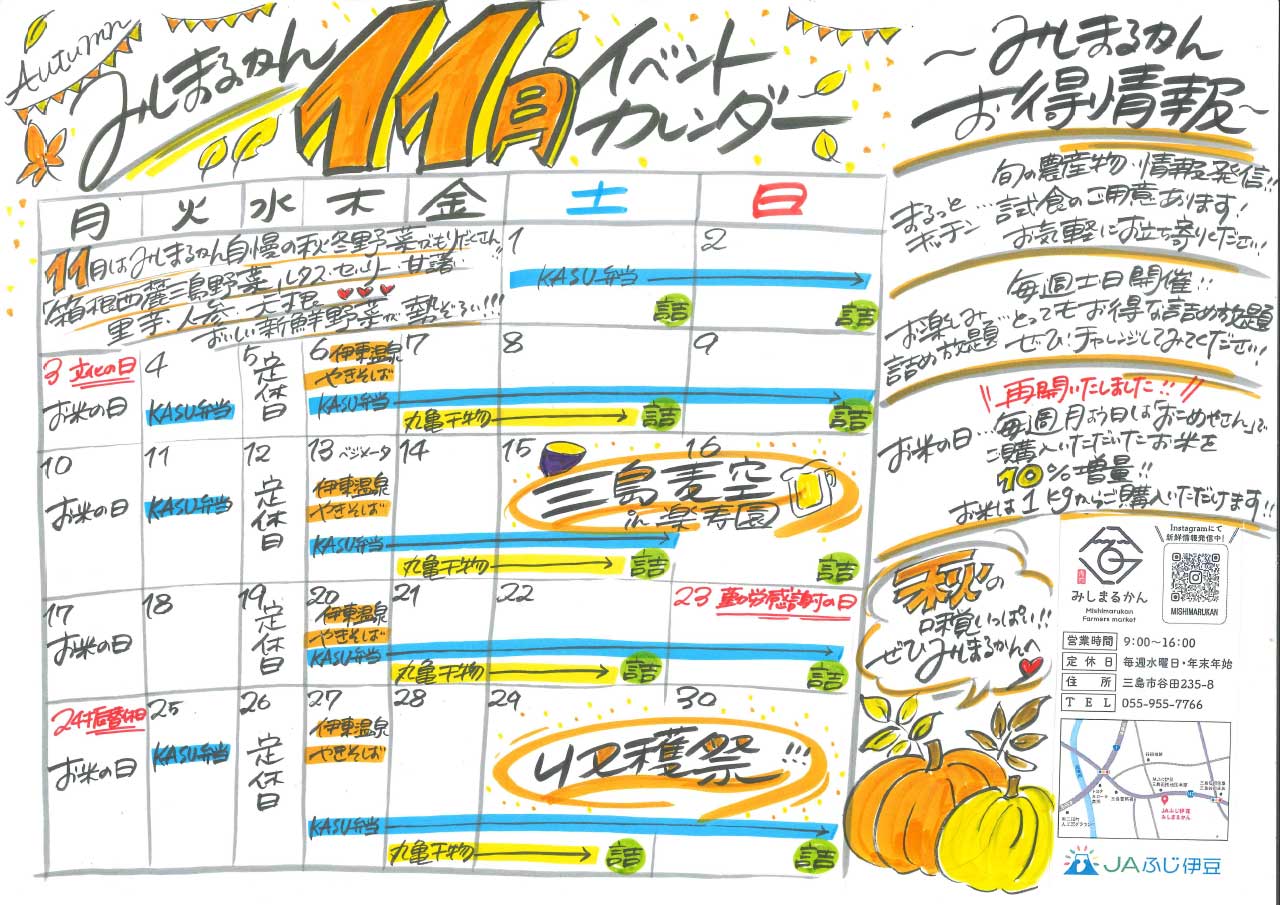 Autumn
みしまるかん
11月
イベント
カレンダー
月 火 水 木 金 土 日
11月はみしまるかん自慢の秋冬野菜がもりだくさん!!
「箱根西麓三島野菜」レタス・セルリー・甘藷
里芋・人参・大根
おいしい新鮮野菜が勢ぞろい!!!
1
2
KASU弁当
詰
詰
3 文化の日
お米の日
4
KASU弁当
5
定休日
6
伊東温泉
やきそば
KASU弁当
7
丸亀干物
8
詰
9
詰
10
お米の日
11
KASU弁当
12
定休日
13 ベジメータ
伊東温泉
やきそば
KASU弁当
14
丸亀干物
15
16
三島麦空
in 楽寿園
詰
詰
17
お米の日
18
19
定休日
20
伊東温泉
やきそば
KASU弁当
21
丸亀干物
22
詰
23 勤労感謝の日
詰
24 振替休日
お米の日
25
KASU弁当
26
定休日
27
伊東温泉
やきそば
KASU弁当
28
丸亀干物
29
30
収穫祭!!!
詰
詰
〜みしまるかん
お得情報〜
まるっとキッチン…
旬の農産物・情報発信!!
試食のご用意あります!
お気軽にお立ち寄りください!
お楽しみ詰め放題…
毎週土日開催!!
とってもお得な詰め放題
ぜひ!チャレンジしてみてください!
\\再開いたしました!!//
お米の日…毎週月よう日は「おこめやさん」で
ご購入いただいたお米を
10%増量!!
お米は1kgからご購入いただけます!!
秋の
味覚いっぱい!!
ぜひみしまるかんへ
みしまるかん
Mishimarukan
Farmers market
Instagramにて
新鮮情報発信中!
MISHIMARUKAN
営業時間 9:00〜16:00
定休日 毎週水曜日・年末年始
住所 三島市谷田235-8
TEL 055-955-7766
JAふじ伊豆
みしまるかん
JAふじ伊豆